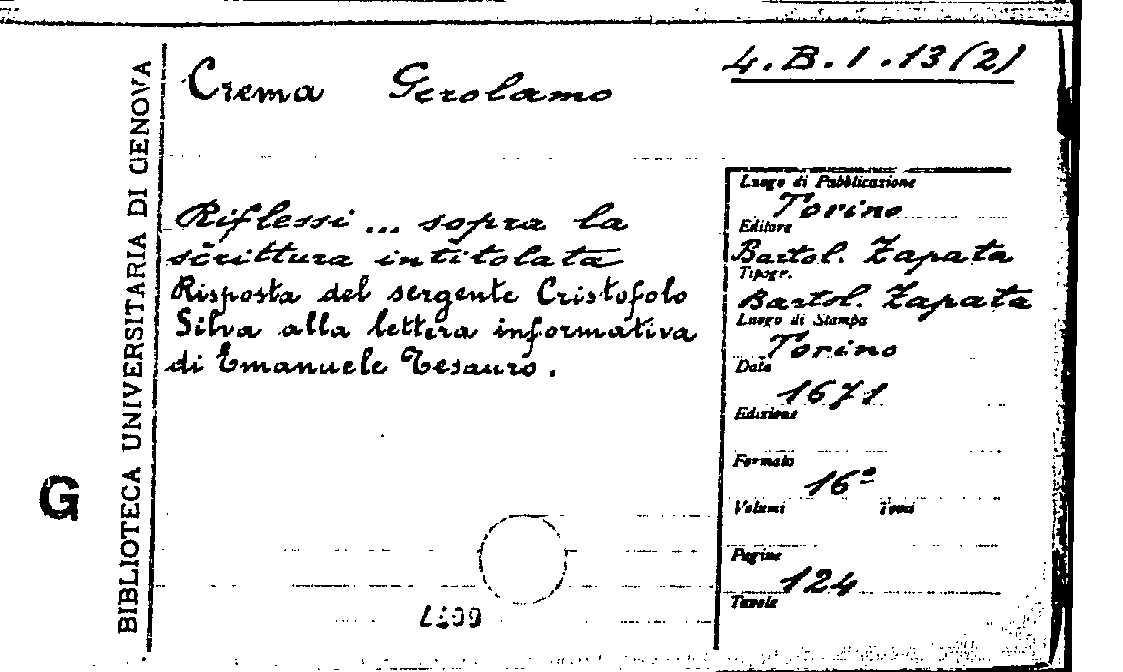 4.B.1.13(2)
Crema Gerolamo
BIBLIOTECA UNIVERSITARIA DI GENOVA
G
Riflessi ... sopra la
scrittura intitolata
Risposta del sergente Cristofolo
Silva alla lettera informativa
di Emanuele Tesauro.
Luogo di Pubblicazione
Torino
Editore
Bartol. Zapata
Tipogr.
Bartol. Zapata
Luogo di Stampa
Torino
Data
1671
Edizione
Formato
16º
Volumi Tomi
Pagine
124
Tavole